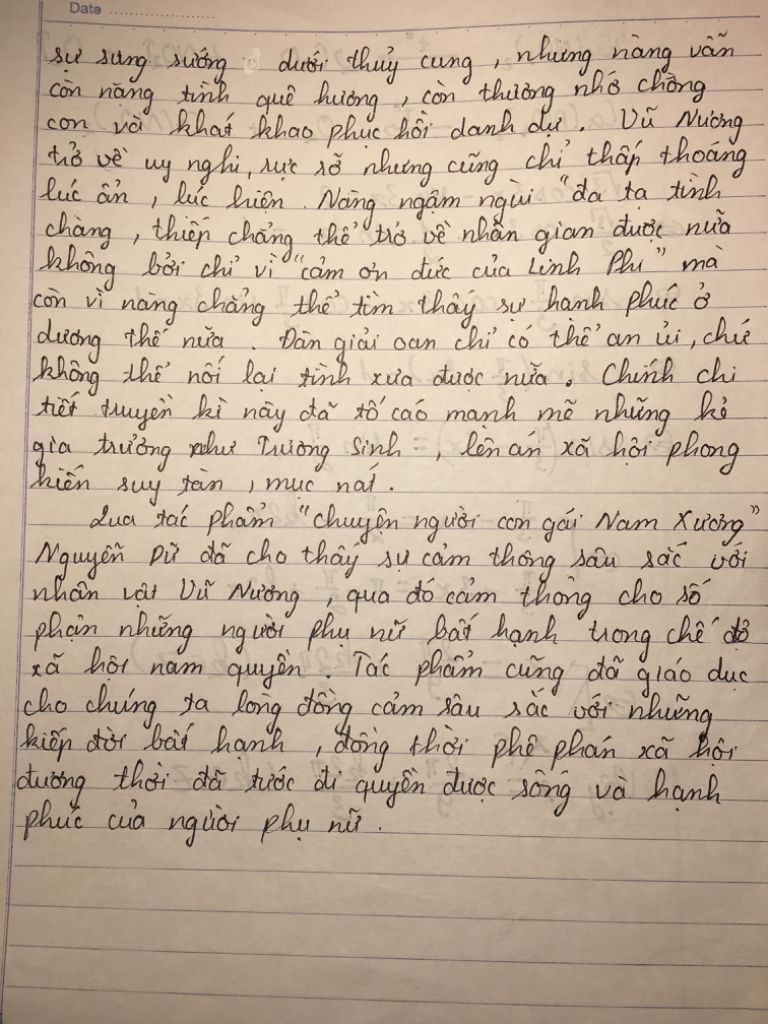 Date
sự sung sướng dưới thuỷ cung, nhưng nàng vẫn
còn nặng tình quê hương, còn thương nhớ chồng
con và khát khao phục hồi danh dự. Vũ Nương
trở về uy nghi, rực rỡ nhưng cũng chỉ thấp thoáng
lúc ẩn, lúc hiện. Nàng ngậm ngùi "đa tạ tình
chàng, thiếp chẳng thể trở về nhân gian được nữa
không bởi chỉ vì "cảm ơn đức của Linh Phi" mà
còn vì nàng chẳng thể tìm thấy sự hạnh phúc ở
dương thế nữa. Đàn giải oan chỉ có thể an ủi, chứ
không thể nối lại tình xưa được nữa. Chính chi
tiết truyền kì này đã tố cáo mạnh mẽ những kẻ
gia trưởng như Trương Sinh, lên án xã hội phong
kiến suy tàn, mục nát.
Qua tác phẩm "chuyện người con gái Nam Xương"
Nguyễn Dữ đã cho thấy sự cảm thông sâu sắc với
nhân vật Vũ Nương, qua đó cảm thông cho số
phận những người phụ nữ bất hạnh trong chế độ
xã hội nam quyền. Tác phẩm cũng đã giáo dục
cho chúng ta lòng đồng cảm sâu sắc với những
kiếp đời bất hạnh, đồng thời phê phán xã hội
đương thời đã tước đi quyền được sống và hạnh
phúc của người phụ nữ.